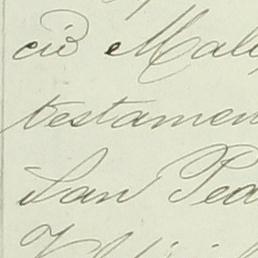 ció Mal
testamen
San Pea